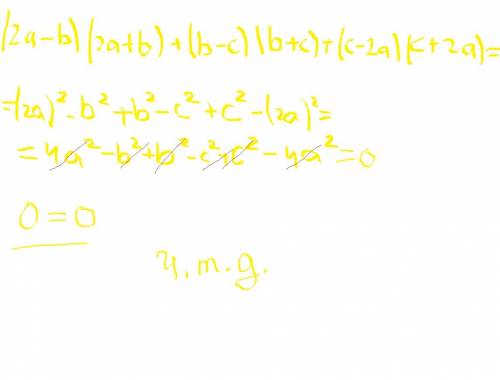 (2a-b)(2a+b)+(b-c)(b+c)+(c-2a)(c+2a)=
=(2a)²-b²+b²-c²+c²-(2a)²=
=4a²-b²+b²-c²+c²-4a²=0
0=0
ч.т.д.